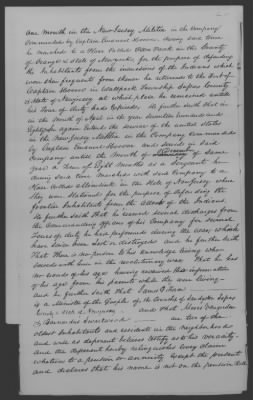 One month in the New Jersey Militia in the Company
Commanded by Captain Emanuel Hoover during said time
he marched to a place called in the County
of Orange & State of New York, for the purpose of defending
the Inhabitants from the incursions of the Indians which
were then frequent from thence he returned to the Fort of
Captain Hoovers in Wallpack Township Sussex County
& State of New Jersey at which place he remained until
his tour of duty had expired. He further said that in
the month of April in the year Seventeen hundred and
again entered the service of the united states
in the New Jersey Militia in the Company Commanded
by Captain Emanuel Hoover and served in said
Company untill the month of of same
year a term of Eight months as a Sergeant
during said time marched with said Company to a
place called in the State of New Jersey where
they were Stationed for the purpose of defending the
frontier Inhabitants from the attacks of the Indians.
He further said that he received several discharges from
the Commanding officers of his Company for several
Tours of duty he had performed during the war, which
have since been lost or destroyed and he further saith
That there is no person to his knowledge living who
served with him in the revolutionary war. That he has
no record of his age having received the information
of his age from his parents while they were living
and he further saith that James
is a minister of the Gospel of the
County & State of New Jersey and that
& Swartwood are two of the
oldest Inhabitants and residents in the neighborhood
and will as deponent believes testify as to his veracity.
And this deponent hereby relinquishes every claim
whatever to a pension or annuity except the present
and declares that his name is not on the pension Roll